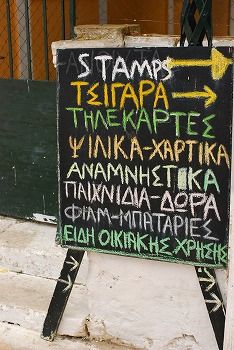 STAMPS
ΤΣΙΓΑΡΑ
ΤΗΛΕΚΑΡΤΕΣ
ΨΙΛΙΚΑ-ΧΑΡΤΙΚΑ
ΑΝΑΜΝΗΣΤΙΚΑ
ΠΑΙΧΝΙΔΙΑ-ΔΩΡΑ
ΦΙΛΜ-ΜΠΑΤΑΡΙΕΣ
ΕΙΔΗ ΟΙΚΙΑΚΗΣ ΧΡΗΣΗΣ